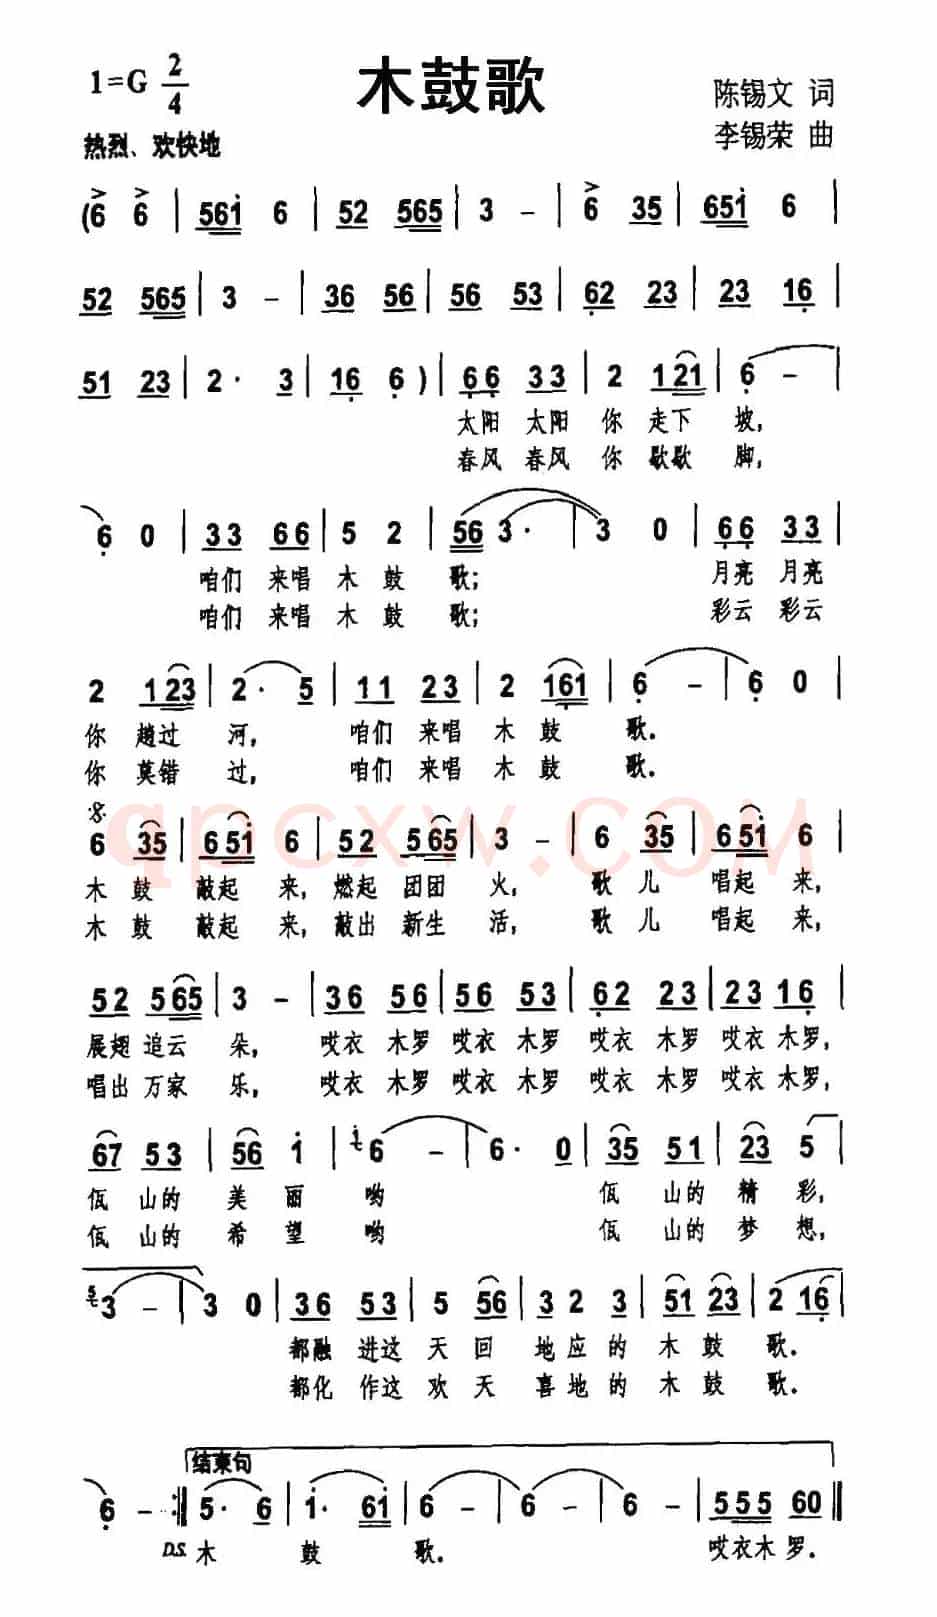 1=G 2/4
木鼓歌
陈锡文 词
热烈、欢快地
李锡荣 曲
(6 6 | 561 6 | 52 565 | 3 – | 6 35 | 651 6 |
52 565 | 3 – | 36 56 | 56 53 | 62 23 | 23 16 |
51 23 | 2· 3 | 16 6 ) | 66 33 | 2 121 | 6 – |
太阳 太阳 你 走下 坡,
春风 春风 你 歇歇 脚,
6 0 | 33 66 | 5 2 | 56 3· | 3 0 | 66 33 |
咱们 来唱 木 鼓 歌; 月亮 月亮
咱们 来唱 木 鼓 歌; 彩云 彩云
2 123 | 2· 5 | 11 23 | 2 161 | 6 – | 6 0 |
你 趟过 河, 咱们 来唱 木 鼓 歌.
你 莫错 过, 咱们 来唱 木 鼓 歌.
qpcxw.com
6 35 | 651 6 | 52 565 | 3 – | 6 35 | 651 6 |
木 鼓 敲起 来, 燃起 团团 火, 歌 儿 唱起 来,
木 鼓 敲起 来, 敲出 新生 活, 歌 儿 唱起 来,
52 565 | 3 – | 36 56 | 56 53 | 62 23 | 23 16 |
展翅 追云 朵, 哎衣 木罗 哎衣 木罗 哎衣 木罗 哎衣 木罗,
唱出 万家 乐, 哎衣 木罗 哎衣 木罗 哎衣 木罗 哎衣 木罗,
67 53 | 56 1 | 1 6 – | 6· 0 | 35 51 | 23 5 |
佤 山的 美 丽 哟 佤 山的 精 彩,
佤 山的 希 望 哟 佤 山的 梦 想,
5 3 – | 3 0 | 36 53 | 5 56 | 3 2 3 | 51 23 | 2 16 |
都融 进这 天 回 地应 的 木 鼓 歌.
都化 作这 欢 天 喜地 的 木 鼓 歌.
结束句
6 – :‖ 5· 6 | 1· 61 | 6 – | 6 – | 6 – | 555 60 ‖
D.S. 木 鼓 歌. 哎衣木 罗.